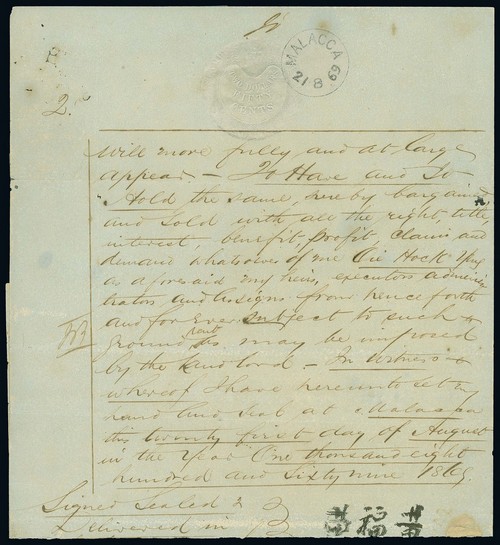 MALACCA
21 8 69
2.
will more fully and at large
appear. – To Have and To
Hold the same, hereby bargained
and Sold with all the right, title,
interest, benefit, profit, claim, and
demand whatsoever of me Hock
as aforesaid my heirs, executors adminis
trators and Assigns from hence forth
and for Ever subject to such
ground rent as may be imposed
by the Land lord – In witness
whereof I have hereunto set my
hand and Seal at Malacca
this twenty first day of August
in the Year One thousand eight
hundred and Sixty nine 1869.
Signed Sealed &
Delivered in
福黃